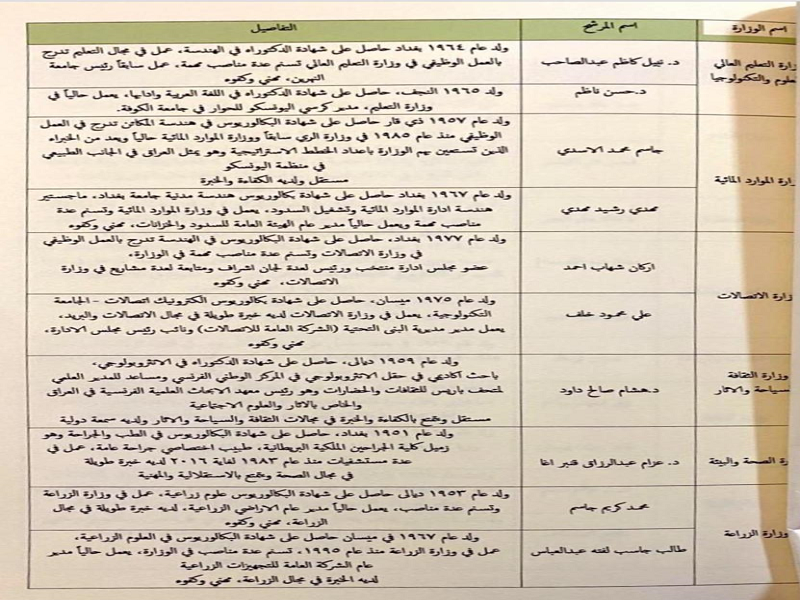 اسم الوزارة
اسم المرشح
التفاصيل
التعليم العالي
والتكنولوجيا
د. نبيل كاظم عبدالصاحب
ولد عام ١٩٦٤ بغداد حاصل على شهادة الدكتوراه في الهندسة، عمل في مجال التعليم تدرج
بالعمل الوظيفي في وزارة التعليم العالي تسنم عدة مناصب مهمة، عمل سابقاً رئيس جامعة
النهرين، مهني وكفوه
د.حسن ناظم
ولد ١٩٦٥ النجف، حاصل على شهادة الدكتوراه في اللغة العربية وادابها، يعمل حالياً في
وزارة التعليم، مدير كرسي اليونسكو للحوار في جامعة الكوفة.
الموارد المائية
جاسم محمد الاسدي
ولد عام ١٩٥٧ ذي قار حاصل على شهادة البكالوريوس في هندسة المكائن تدرج في العمل
الوظيفي منذ عام ١٩٨٥ في وزارة الري سابقاً ووزارة الموارد المائية حالياً ويعد من الخبراء
الذين تستعين بهم الوزارة باعداد الخطط الاستراتيجية وهو يمثل العراق في الجانب الطبيعي
في منظمة اليونسكو
مستقل ولديه الكفاءة والخبرة
مهدي رشيد مهدي
ولد عام ١٩٦٧ بغداد حاصل على شهادة بكالوريوس هندسة مدنية جامعة بغداد، ماجستير
هندسة ادارة الموارد المائية وتشغيل السدود، يعمل في وزارة الموارد المائية وتسنم عدة
مناصب مهمة ويعمل حالياً مدير عام الهيئة العامة للسدود والخزانات، مهني وكفوه
الاتصالات
اركان شهاب احمد
ولد عام ١٩٧٧ بغداد، حاصل على شهادة البكالوريوس في الهندسة تدرج بالعمل الوظيفي
في وزارة الاتصالات وتسنم عدة مناصب مهمة في الوزارة.
عضو مجلس ادارة منتخب ورئيس لعدة لجان اشراف ومتابعة لعدة مشاريع في وزارة
الاتصالات، مهني وكفوه
علي محمود خلف
ولد عام ١٩٧٥ ميسان، حاصل على شهادة بكالوريوس الكترونيك اتصالات - الجامعة
التكنولوجية، يعمل في وزارة الاتصالات لديه خبرة طويلة في مجال الاتصالات والبريد،
يعمل مدير مديرية البنى التحتية (الشركة العامة للاتصالات) ونائب رئيس مجلس الادارة،
مهني وكفوه
وزارة الثقافة
والاثار
د.هشام صالح داود
ولد عام ١٩٥٩ ديالى، حاصل على شهادة الدكتوراه في الانثروبولوجي،
باحث اكاديمي في حقل الانثروبولوجي في المركز الوطني الفرنسي ومساعد للمدير العلمي
لمتحف باريس للثقافات والحضارات وهو رئيس معهد الابحاث العلمية الفرنسية في العراق
والخاص بالاثار والعلوم الاجتماعية
مستقل ويتمتع بالكفاءة والخبرة في مجالات الثقافة والسياحة والاثار ولديه سمعة دولية
الصحة والبيئة
د. عزام عبدالرزاق قنبر اغا
ولد عام ١٩٥١ بغداد، حاصل على شهادة البكالوريوس في الطب والجراحة وهو
زميل كلية الجراحين الملكية البريطانية، طبيب اختصاصي جراحة عامة، عمل في
عدة مستشفيات منذ عام ١٩٨٣ لغاية ٢٠١٦ لديه خبرة طويلة
في مجال الصحة ويتمتع بالاستقلالية والمهنية
وزارة الزراعة
محمد كريم جاسم
ولد عام ١٩٥٣ ديالى حاصل على شهادة البكالوريوس علوم زراعية، عمل في وزارة الزراعة
وتسنم عدة مناصب، يعمل حالياً مدير عام الاراضي الزراعية، لديه خبرة طويلة في مجال
الزراعة، مهني وكفوه
طالب جاسب لفته عبدالعباس
ولد عام ١٩٦٧ في ميسان حاصل على شهادة البكالوريوس في العلوم الزراعية،
عمل في وزارة الزراعة منذ عام ١٩٩٥، تسنم عدة مناصب في الوزارة، يعمل حالياً مدير
عام الشركة العامة للتجهيزات الزراعية
لديه الخبرة في مجال الزراعة، مهني وكفوه